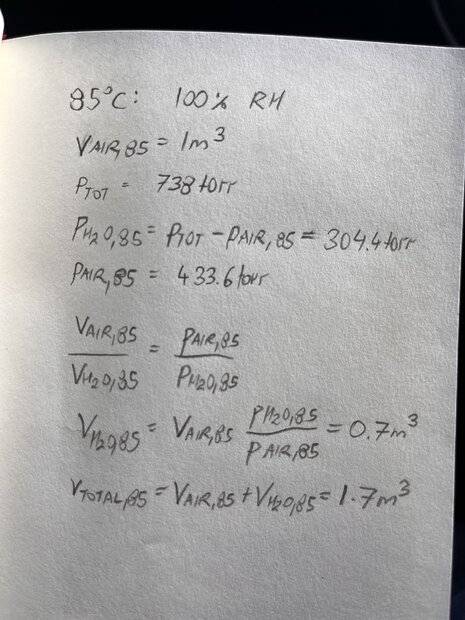 85°C: 100% RH
VAIR,85 = 1m³
PTOT = 738 torr
PH₂O,85 = PTOT - PAIR,85 = 304.4 torr
PAIR,85 = 433.6 torr
VAIR,85 / VH₂O,85 = PAIR,85 / PH₂O,85
VH₂O,85 = VAIR,85 PH₂O,85 / PAIR,85 = 0.7m³
VTOTAL,85 = VAIR,85 + VH₂O,85 = 1.7m³